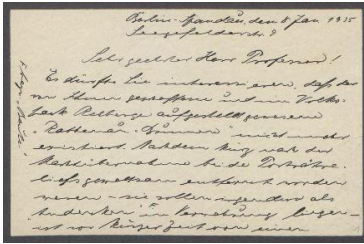 Berlin-Spandau, den 8 Jan 1935
Seegefelderstr. 9
Sehr geehrter Herr Professor!
Es dürfte Sie interessieren, daß der
von Ihnen geschaffene und im Volks-
park Rehberge aufgestellt gewesene
"Rathenau-Brunnen" nicht mehr
existiert. Nachdem kurz nach der
Machtübernahme beide Porträtre-
liefs gewaltsam entfernt worden
waren - sie sollen irgendwo als
Andenken in Verwahrung liegen -
ist vor kürzer Zeit von einem